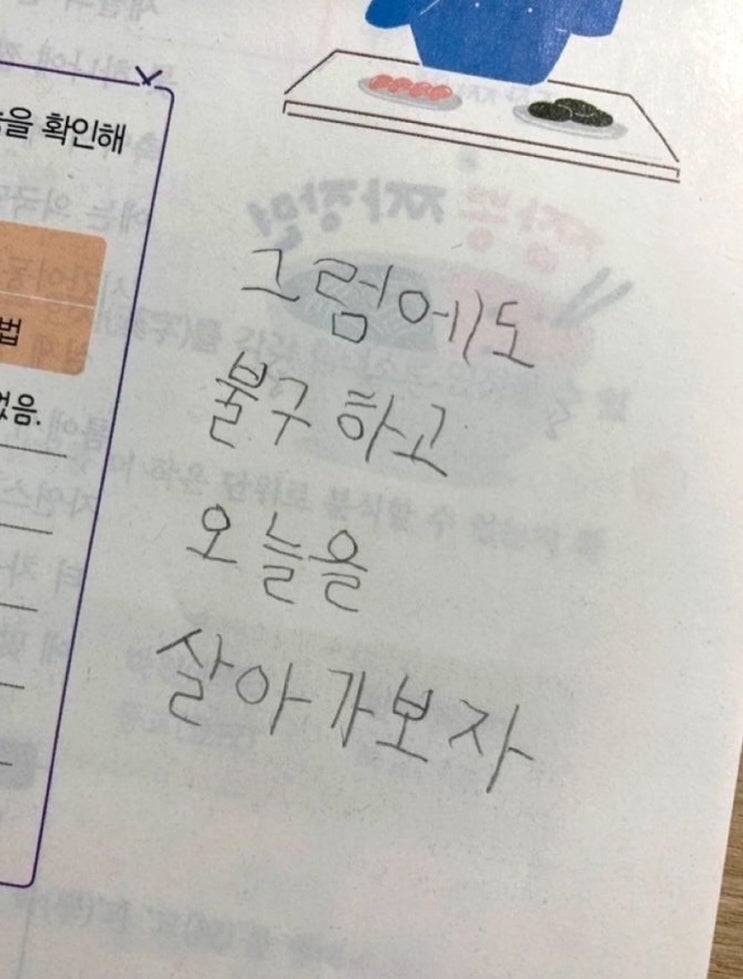 을 확인해
법
없음.
그럼에도
불구하고
오늘을
살아가보자